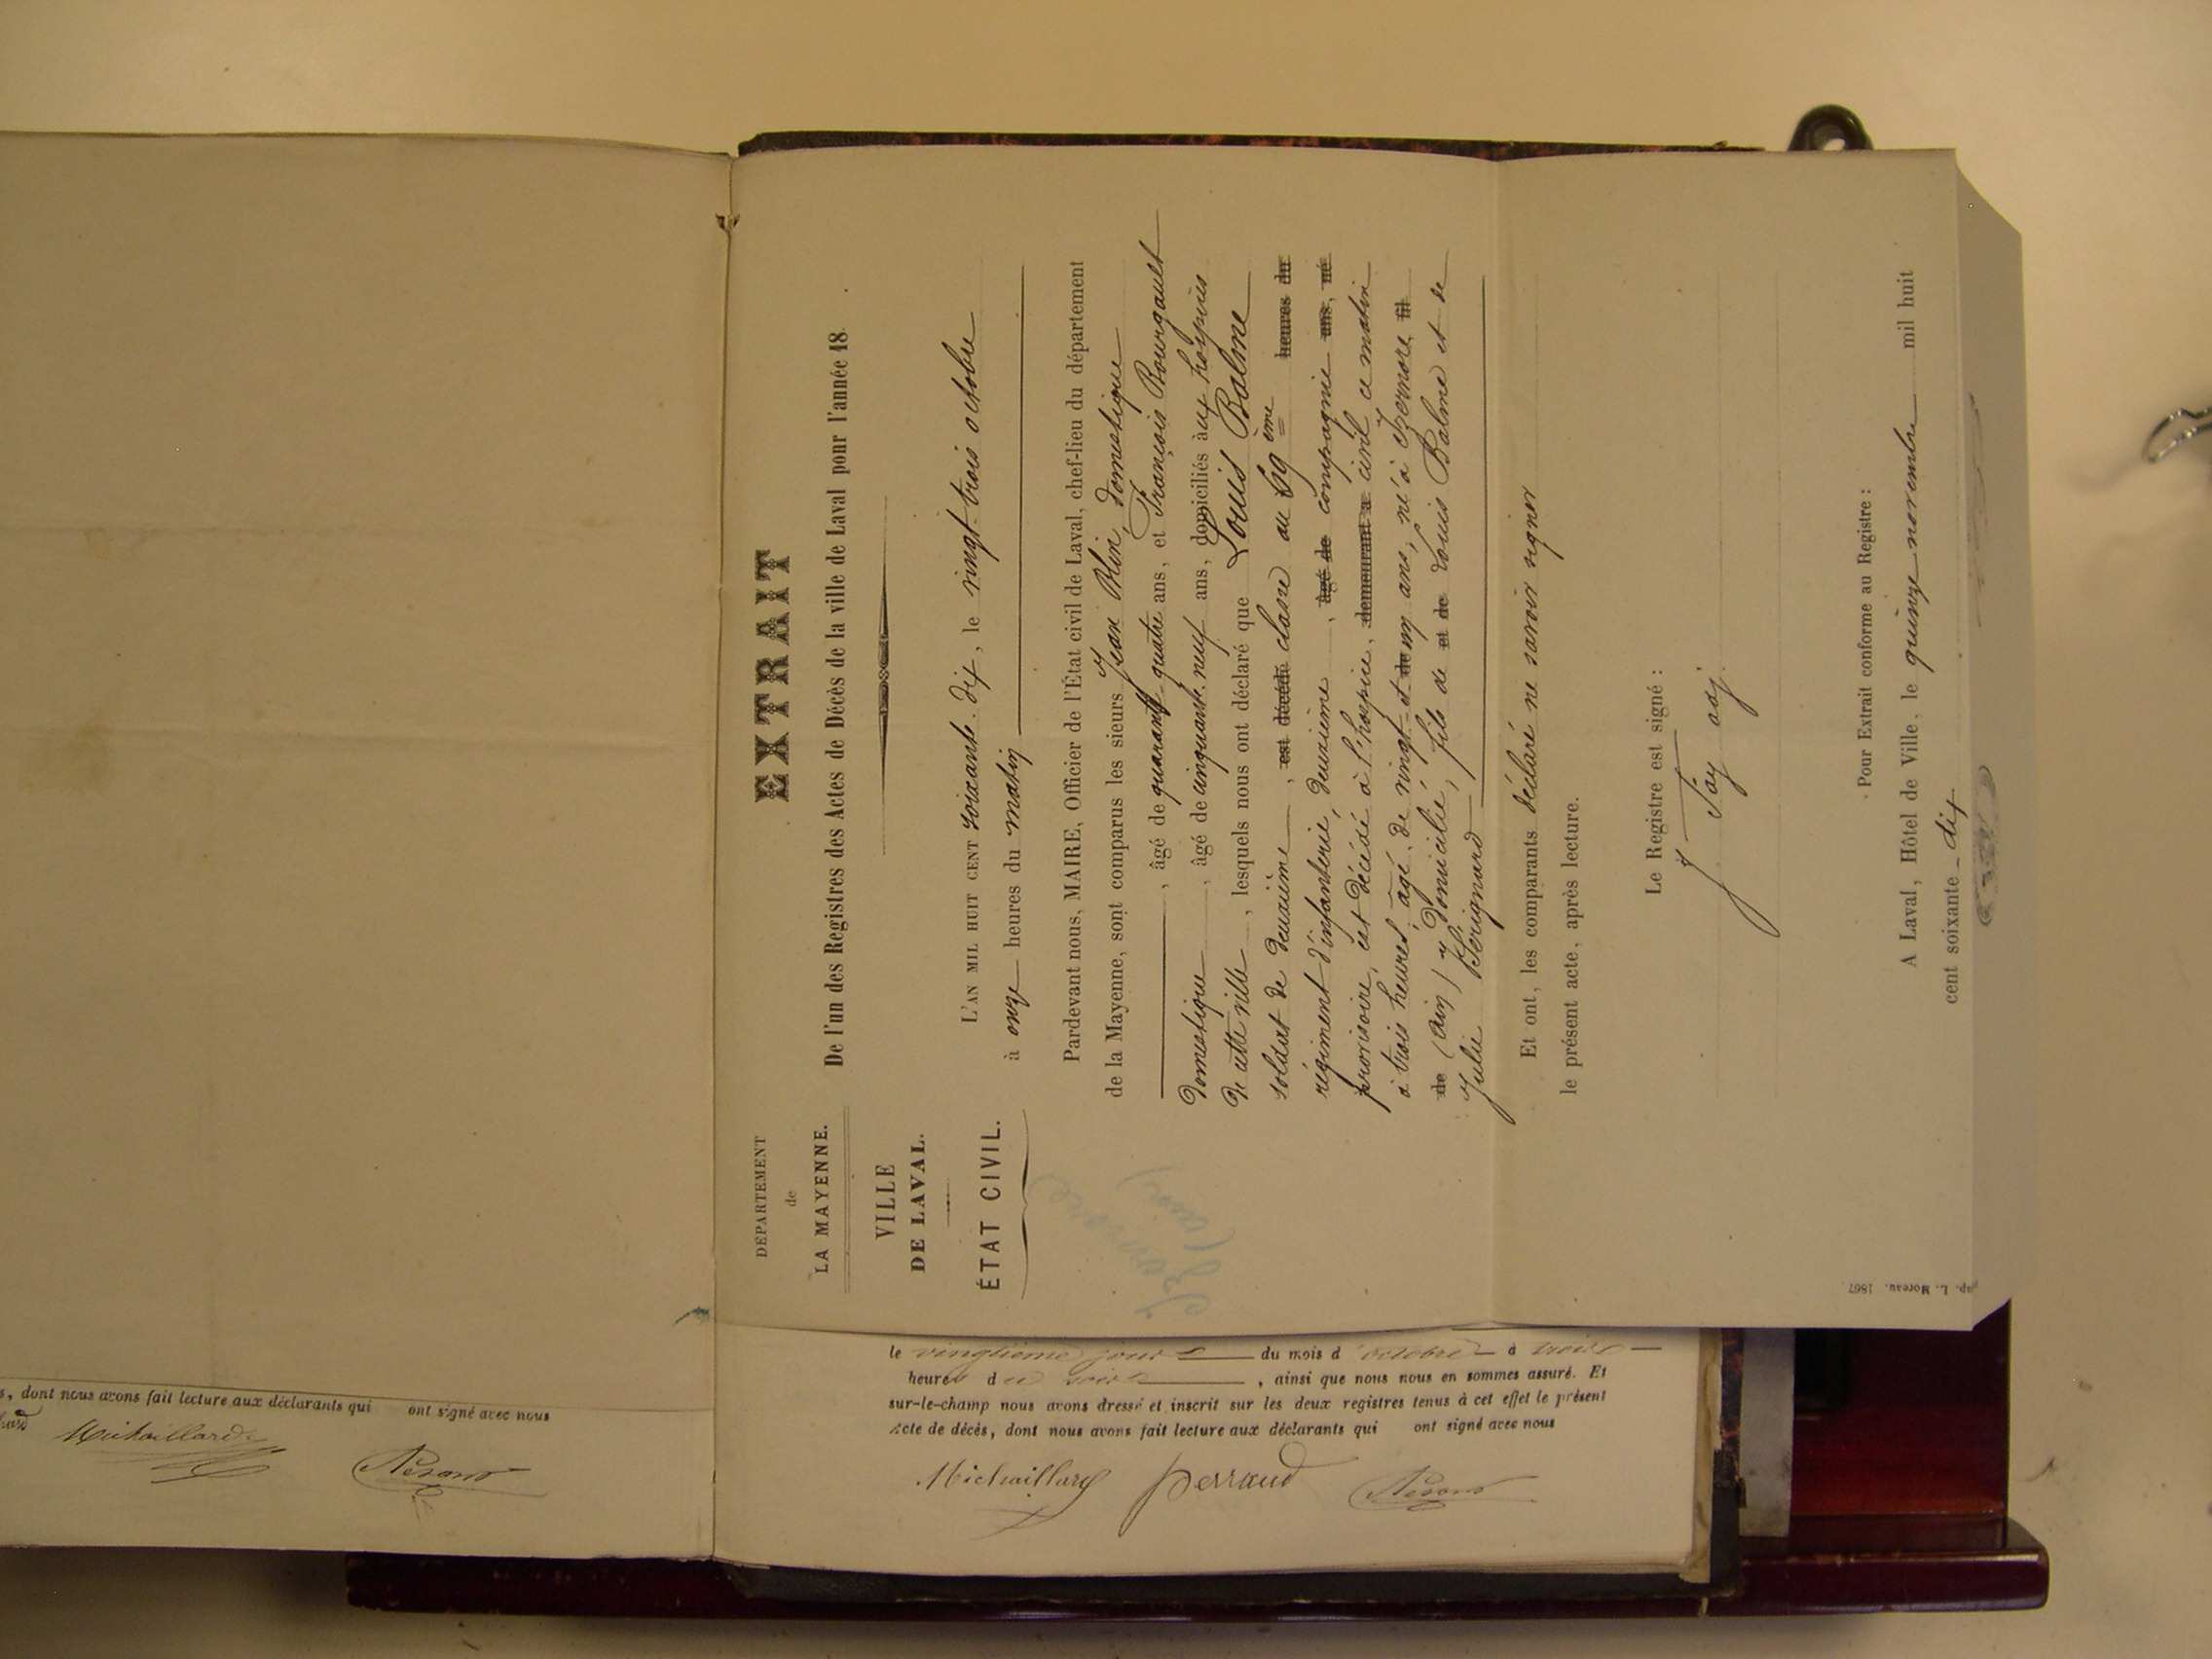 DÉPARTEMENT
de
LA MAYENNE.
VILLE
DE LAVAL.
ÉTAT CIVIL.
Izernore
(ain)
EXTRAIT
De l'un des Registres des Actes de Décès de la ville de Laval pour l'année 18
L'AN MIL HUIT CENT soixante-dix, le vingt-trois octobre
à onze heures du matin
Pardevant nous, MAIRE, Officier de l'État civil de Laval, chef-lieu du département
de la Mayenne, sont comparus les sieurs Jean Blin, domestique
, âgé de quarante quatre ans, et François Bourgault
domestique, âgé de cinquante-neuf ans, domiciliés aux hospices
de cette ville, lesquels nous ont déclaré que Louis Balme
soldat de deuxième, est décédé classe au 69ème heures du
régiment d'infanterie, deuxième, âgé de compagnie ans, né
provisoire, est décédé à l'hospice, demeurant à civil ce matin
à trois heures, âgé de vingt et de un ans, né à Izernore fil
de (ain) y domicilié, fils de et de Louis Balme et de
Julie Perignard
Et ont, les comparants déclaré ne savoir signer
le présent acte, après lecture.
Le Registre est signé :
Jay adj.
Pour Extrait conforme au Registre :
A Laval, Hôtel de Ville, le quinze novembre mil huit
cent soixante-dix
L. Moreau. 1867
s, dont nous avons fait lecture aux déclarants qui ont signé avec nous
Michaillard
le vingtième jour du mois d'octobre à trois
heures du soir, ainsi que nous nous en sommes assuré. Et
sur-le-champ nous avons dressé et inscrit sur les deux registres tenus à cet effet le présent
Acte de décès, dont nous avons fait lecture aux déclarants qui ont signé avec nous
Michaillard Perraud